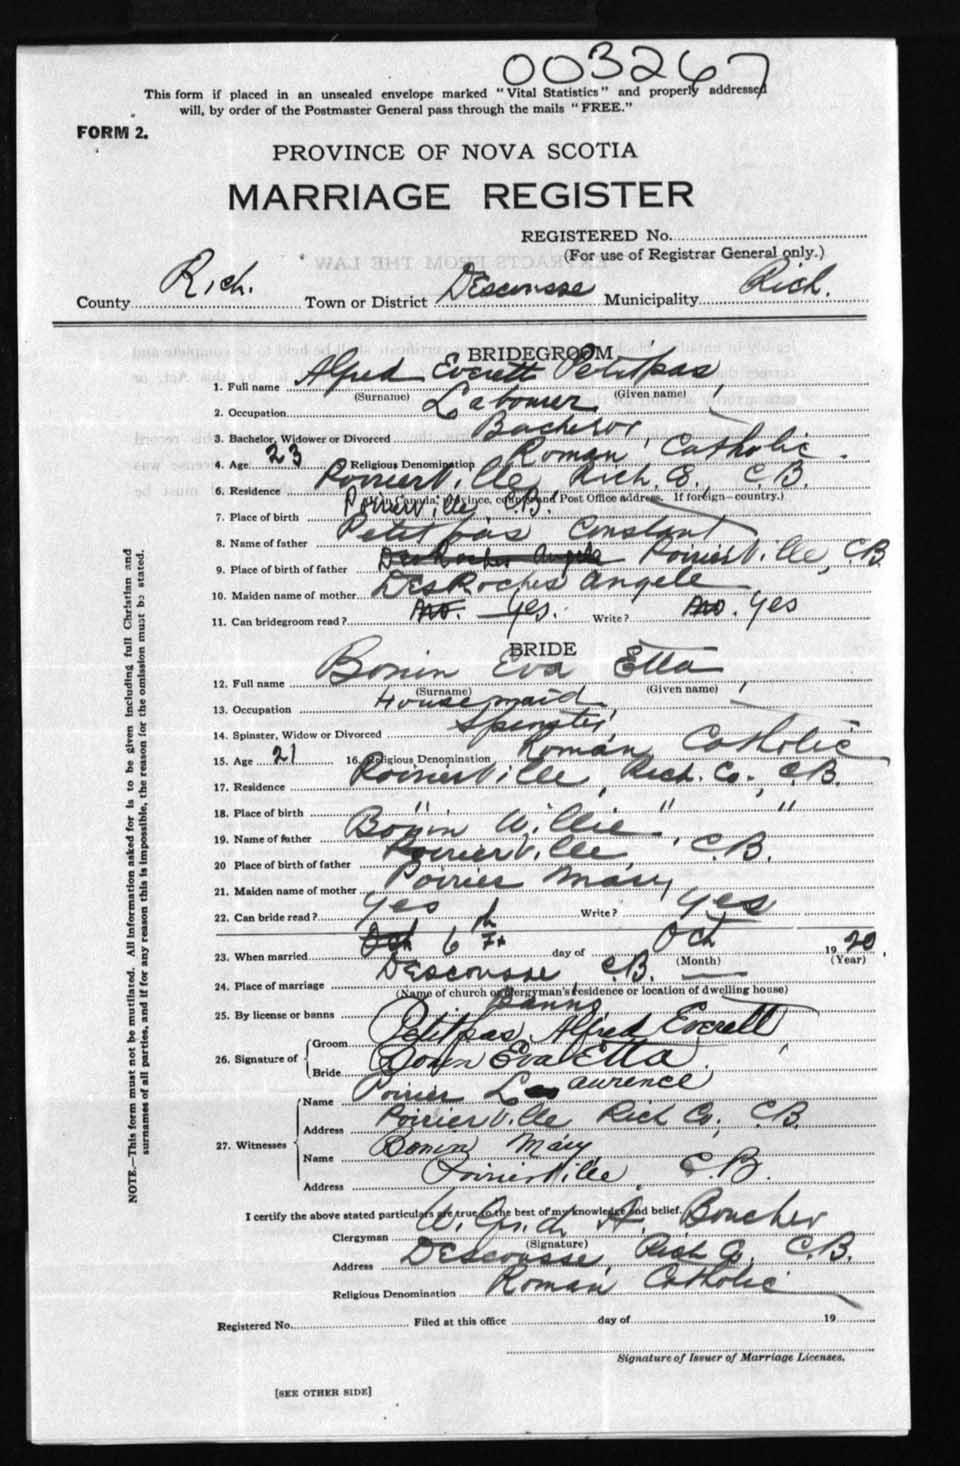 003267
This form if placed in an unsealed envelope marked "Vital Statistics" and properly addressed
will, by order of the Postmaster General pass through the mails "FREE."
FORM 2.
PROVINCE OF NOVA SCOTIA
MARRIAGE REGISTER
REGISTERED No.
(For use of Registrar General only.)
County Rich. Town or District Descousse Municipality Rich.
BRIDEGROOM
1. Full name Alfred Everett Petitpas
(Surname) (Given name)
2. Occupation Labourer
3. Bachelor, Widower or Divorced Bachelor
4. Age 23 5. Religious Denomination Roman Catholic.
6. Residence Poirierville, Rich. Co., C.B.
(If in Canada, province, county and Post Office address. If foreign—country.)
7. Place of birth Poirierville, C.B.
8. Name of father Petitpas Constant
9. Place of birth of father DesRoches Angele Poirierville, C.B.
10. Maiden name of mother DesRoches Angele
11. Can bridegroom read? No. Yes. Write? No. Yes
BRIDE
12. Full name Bonin Eva Etta
(Surname) (Given name)
13. Occupation Housemaid
14. Spinster, Widow or Divorced Spinster
15. Age 21 16. Religious Denomination Roman Catholic
17. Residence Poirierville, Rich. Co., C.B.
18. Place of birth " " "
19. Name of father Bonin Willie
20 Place of birth of father Poirierville, C.B.
21. Maiden name of mother Poirier Mary
22. Can bride read? Yes Write? Yes
23. When married Oct 6th day of Oct 1920
(Month) (Year)
24. Place of marriage Descousse C.B.
(Name of church or clergyman's residence or location of dwelling house)
25. By license or banns Banns
26. Signature of Groom Petitpas, Alfred Everett
Bride Bonin Eva Etta
27. Witnesses Name Poirier Laurence
Address Poirierville Rich Co., C.B.
Name Bonin Mary
Address Poirierville, C.B.
I certify the above stated particulars are true to the best of my knowledge and belief.
Clergyman A. Boucher
(Signature)
Address Descousse, Rich Co. C.B.
Religious Denomination Roman Catholic
Registered No. Filed at this office day of 19
Signature of Issuer of Marriage Licenses.
[SEE OTHER SIDE]
NOTE.—This form must not be mutilated. All information asked for is to be given including full Christian and
surnames of all parties, and if for any reason this is impossible, the reason for the omission must be stated.